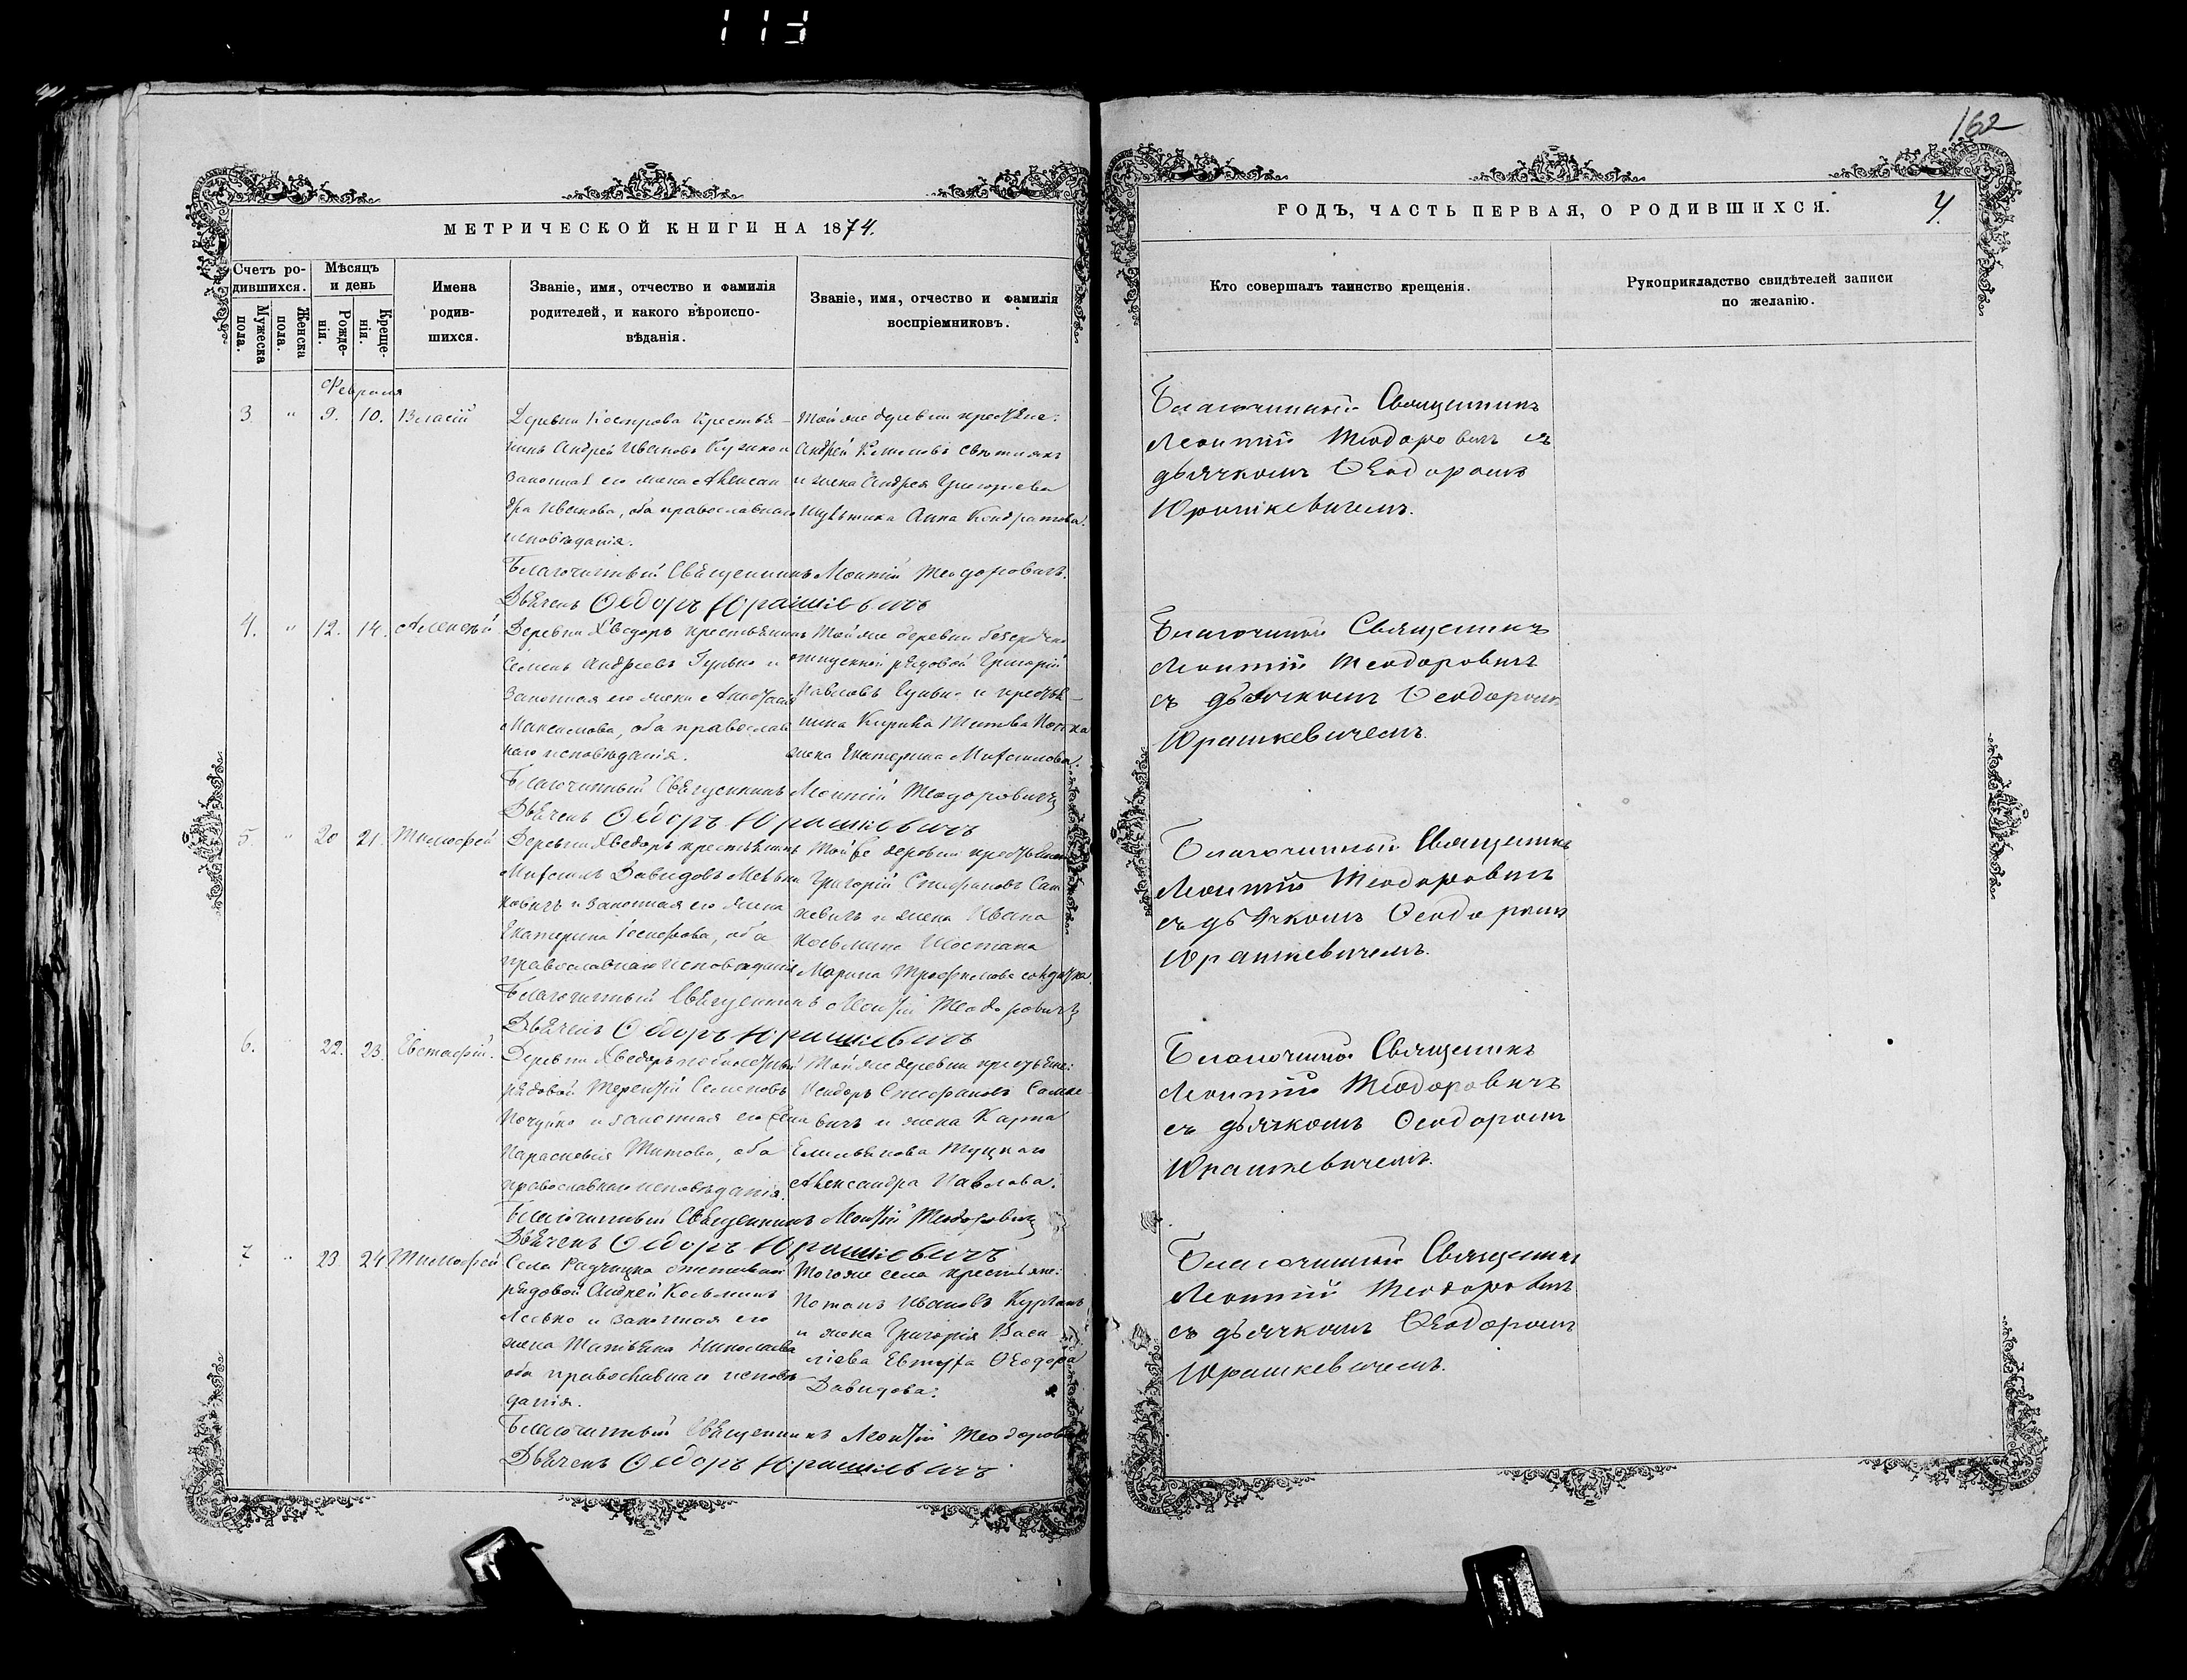 113
162
МЕТРИЧЕСКОЙ КНИГИ НА 1874.
Счетъ ро-
дившихся.
Мужеска
пола.
Женска
пола.
Мѣсяцъ
и день
Рожде-
нія.
Креще-
нія.
Имена
родив-
шихся.
Званіе, имя, отчество и фамилія
родителей, и какого вѣроиспо-
вѣданія.
Званіе, имя, отчество и фамилія
воспріемниковъ.
Февраля
3. " 9. 10. Власій
Деревни крестья-
нинъ Андрей Ивановъ
законная его жена Алексан
дра Иванова, оба православнаго
исповѣданія.
Той же деревни крестьяне:
Андрей
и жена Андрея Григорьева
Анна Кондратова.
Благочинный Священникъ Леонтій Теодоровичъ.
Дьячекъ Ѳедоръ Юрашкевичъ
4. " 12. 14. Алексѣй
Деревни Хведоръ крестьянинъ
Семенъ Андреевъ и
законная его жена
Максимова, оба православ
наго исповѣданія.
Той же деревни безсрочно
отпускной рядовой Григорій
Павловъ и крестья-
нина Титова
жена Екатерина
Благочинный Священникъ Леонтій Теодоровичъ
Дьячекъ Ѳедоръ Юрашкевичъ
5. " 20 21. Тимофей
Деревни Хведоръ крестьянинъ
Давидовъ
и законная его жена
Екатерина оба
православнаго исповѣданія
деревни
Григорій Стефановъ Сам
кевичъ и жена Ивана
Косьмина Шостака
Марина Трофимова
Благочинный Священникъ Леонтій Теодоровичъ
Дьячекъ Ѳедоръ Юрашкевичъ
6. 22. 23. Евстафій.
Деревни Хведоръ
рядовой Терентій Семеновъ
и законная его жена
Параскевія Титова, оба
православнаго исповѣданія.
Той же деревни крестьяне:
Ѳеодоръ Стефановъ Самке
вичъ и жена Карпа
Емельянова
Александра Павлова.
Благочинный Священникъ Леонтій Теодоровичъ
Дьячекъ Ѳедоръ Юрашкевичъ
7 " 23. 24 Тимофей
Села отставной
рядовой Андрей Косьминъ
и законная его
жена Татьяна Николаева
оба православнаго исповѣ
данія.
Того же села крестьяне:
Потапъ Ивановъ
и жена Григорія Васи
ліева Ѳеодора
Давидова.
Благочинный Священникъ Леонтій Теодоровичъ
Дьячекъ Ѳедоръ Юрашкевичъ
ГОДЪ, ЧАСТЬ ПЕРВАЯ, О РОДИВШИХСЯ.
4.
Кто совершалъ таинство крещенія.
Рукоприкладство свидѣтелей записи
по желанію.
Благочинный Священникъ
Леонтій Теодоровичъ съ
дьячкомъ Ѳеодоромъ
Юрашкевичемъ.
Благочинный Священникъ
Леонтій Теодоровичъ
съ дьячкомъ Ѳеодоромъ
Юрашкевичемъ.
Благочинный Священникъ
Леонтій Теодоровичъ
съ дьячкомъ Ѳеодоромъ
Юрашкевичемъ.
Благочинный Священникъ
Леонтій Теодоровичъ
съ дьячкомъ Ѳеодоромъ
Юрашкевичемъ.
Благочинный Священникъ
Леонтій Теодоровичъ
съ дьячкомъ Ѳеодоромъ
Юрашкевичемъ.